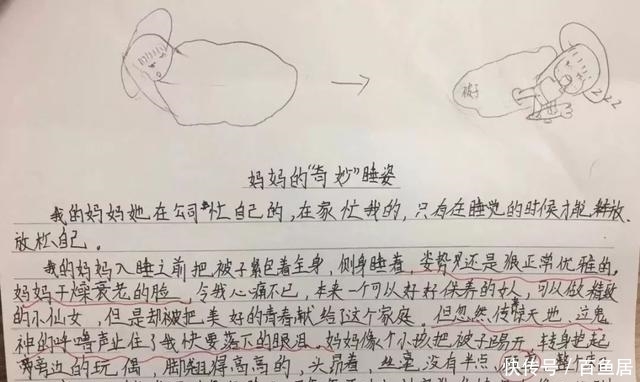 被子
zzz
妈妈的“奇妙”睡姿
我的妈妈她在公司忙自己的,在家忙我的,只有在睡觉的时候才能释放,
放松自己。
我的妈妈入睡之前把被子紧包着全身,侧身睡着,姿势还是很正常优雅的,
妈妈干燥衰老的脸,令我心痛不已,本来一个可以好好保养的女人,可以做精致
的小仙女,但是却被把美好的青春献给了这个家庭。但忽然,惊天地、泣鬼
神的呼噜声止住了我快要落下的眼泪。妈妈像个小孩把被子踢开,转身抱起
旁边的玩偶,脚翘得高高的,头昂着,丝毫没有半点
快传号/百鱼居